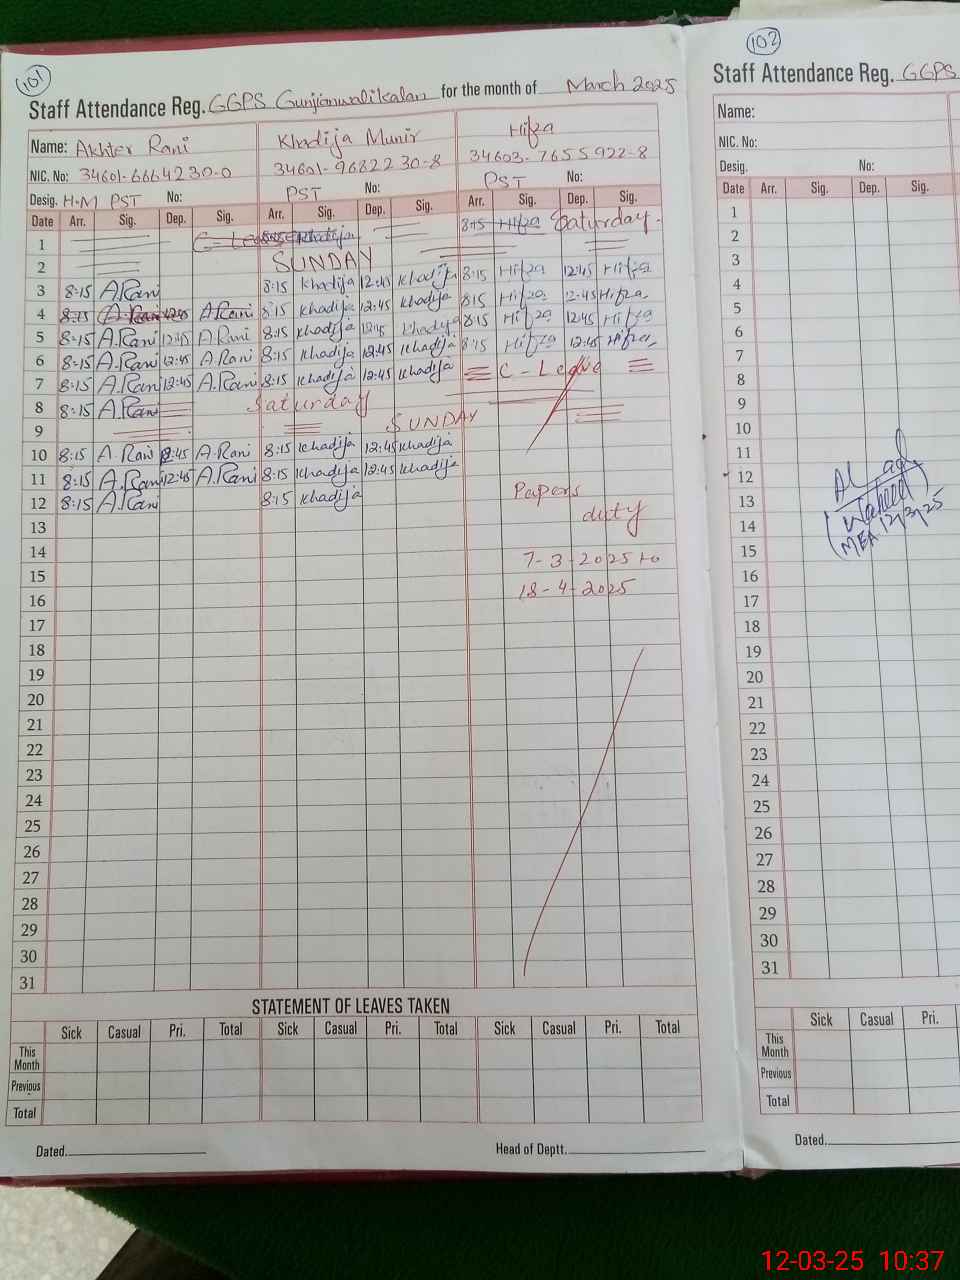 101
Staff Attendance Reg. GGPS Gunjianwalikalan for the month of March 2025
Name: Akhter Rani Khadija Munir Hifza
NIC. No: 34601-6664230-0 34601-9682230-8 34603-7655922-8
Desig. H.M PST No: PST No: PST No:
Date Arr. Sig. Dep. Sig. Arr. Sig. Dep. Sig. Arr. Sig. Dep. Sig.
1 C-Leave 8:15 Khadija 8:15 Hifza Saturday.
2 SUNDAY
3 8:15 A.Rani 8:15 Khadija 12:45 Khadija 8:15 Hifza 12:45 Hifza
4 8:15 A.Rani 12:45 A.Rani 8:15 Khadija 12:45 Khadija 8:15 Hifza 12:45 Hifza
5 8:15 A.Rani 12:45 A.Rani 8:15 Khadija 12:45 Khadija 8:15 Hifza 12:45 Hifza
6 8:15 A.Rani 12:45 A.Rani 8:15 Khadija 12:45 Khadija 8:15 Hifza 12:45 Hifza
7 8:15 A.Rani 12:45 A.Rani 8:15 Khadija 12:45 Khadija C-Leave
8 8:15 A.Rani Saturday
9 SUNDAY
10 8:15 A.Rani 12:45 A.Rani 8:15 Khadija 12:45 Khadija
11 8:15 A.Rani 12:45 A.Rani 8:15 Khadija 12:45 Khadija
12 8:15 A.Rani 8:15 Khadija Papers
13 duty
14 7-3-2025 to
15 18-4-2025
16
17
18
19
20
21
22
23
24
25
26
27
28
29
30
31
STATEMENT OF LEAVES TAKEN
Sick Casual Pri. Total Sick Casual Pri. Total Sick Casual Pri. Total
This Month
Previous
Total
Dated. Head of Deptt.
102
Staff Attendance Reg. GGPS
Name:
NIC. No:
Desig. No:
Date Arr. Sig. Dep. Sig.
1
2
3
4
5
6
7
8
9
10
11
12
13
14 MEA 12/3/25
15
16
17
18
19
20
21
22
23
24
25
26
27
28
29
30
31
Sick Casual Pri.
This Month
Previous
Total
Dated.
12-03-25 10:37